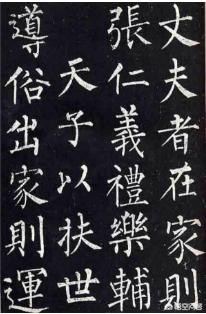 丈夫者在家則
張仁義禮樂輔
天子以扶世
導俗出家則運
悟空问答